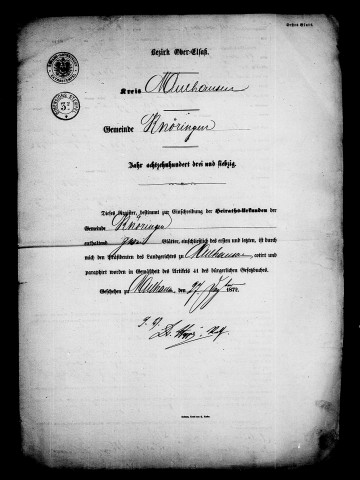 Erstes Blatt.
Bezirk Ober-Elsaß.
Kreis Mulhausen
Gemeinde Knöringen
Jahr achtzehnhundert drei und siebzig.
Dieses Register, bestimmt zur Einschreibung der Heiraths-Urkunden der
Gemeinde Knöringen
enthaltend zwei Blätter, einschließlich des ersten und letzten, ist durch
mich den Präsidenten des Landgerichts zu Mulhausen, cotirt und
paraphirt worden in Gemäßheit des Artikels 41 des bürgerlichen Gesetzbuches.
Geschehen zu Mulhausen, den 27 1872.